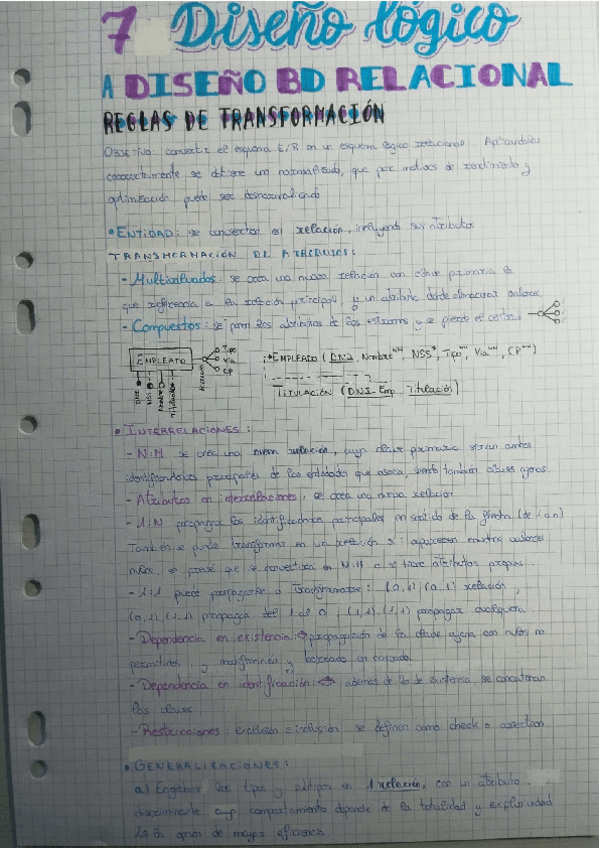 7 Diseño lógico
A DISEÑO BD RELACIONAL
REGLAS DE TRANSFORMACIÓN
Objetivo: convertir el esquema E/R en un esquema lógico relacional. Aplicándolas
correctamente se obtiene un normalizado, que por motivos de rendimiento y
optimización puede ser desnormalizado
• ENTIDAD: se convierten en relación, incluyendo sus atributos
TRANSFORMACIÓN DE ATRIBUTOS:
- Multivaluados: se crea una nueva relación con clave primaria la
que referencia a la relación principal, y un atributo donde almacenar valores
- Compuestos: se ponen los atributos de los extremos y se pierde el central
EMPLEATO
Tipo
Via
CP
DNI
NSS
Nombre
Titulación
:• EMPLEATO (DNI, Nombre, NSS, Tipo, Via, CP)
TITULACIÓN (DNI-Emp, Titulación)
• INTERRELACIONES:
- N:M se crea una nueva relación, cuya clave primaria serían ambos
identificadores principales de las entidades que asocia, siendo también claves ajenas.
- Atributos en interrelaciones: se crea una nueva relación
- 1:N propagar los identificadores principales en sentido de la flecha (de 1 a n)
También se puede transformar en una relación si: aparecen muchos valores
nulos, se prevé que se convertirá en N:M o si tiene atributos propios.
- 1:1 puede propagarse o transformarse: (0,1) (0,1) relación,
(0,1) (1,1) propaga del 1 al 0, (1,1) (1,1) propagar cualquiera.
- Dependencia en existencia: propagación de la clave ajena con nulos no
permitidos, y modificación y borrado en cascada.
- Dependencia en identificación: además de lo de existencia, se concatenan
las claves.
- Restricciones: exclusión e inclusión se definen como check o assertion
• GENERALIZACIONES:
a) Englobar los tipos y subtipos en 1 relación, con un atributo
discriminante cuyo comportamiento depende de la totalidad y exclusividad
Es la opción de mayor eficiencia